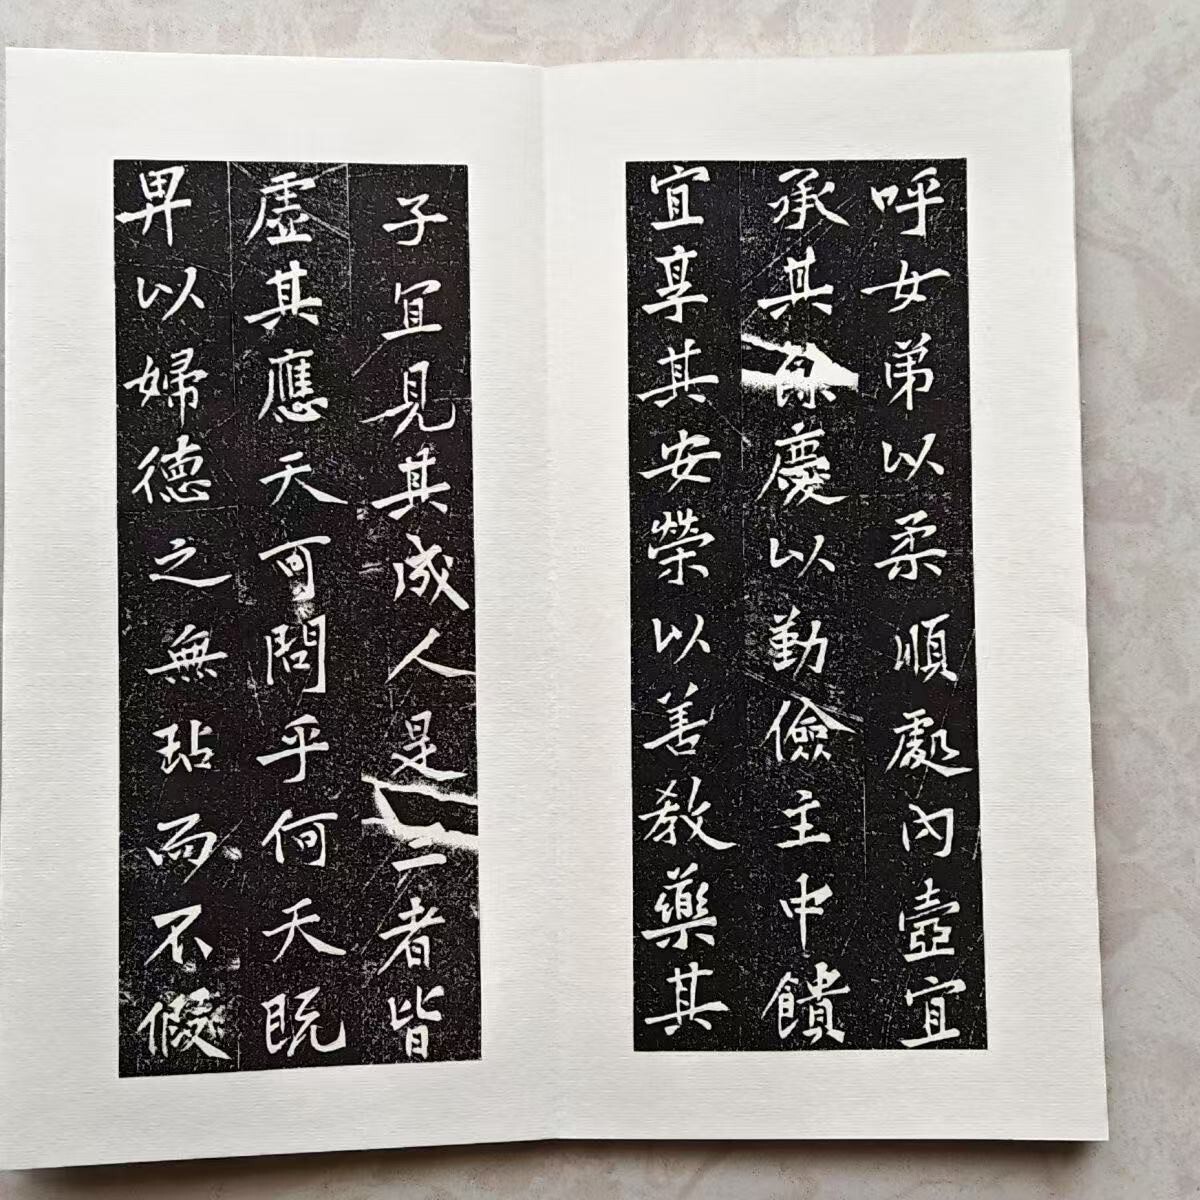 呼女弟以柔順處內壼宜
承其餘慶以勤儉主中饋
宜享其安榮以善教藥其
子宜見其成人是二者皆
虛其應天可問乎何天既
畀以婦德之無玷而不假